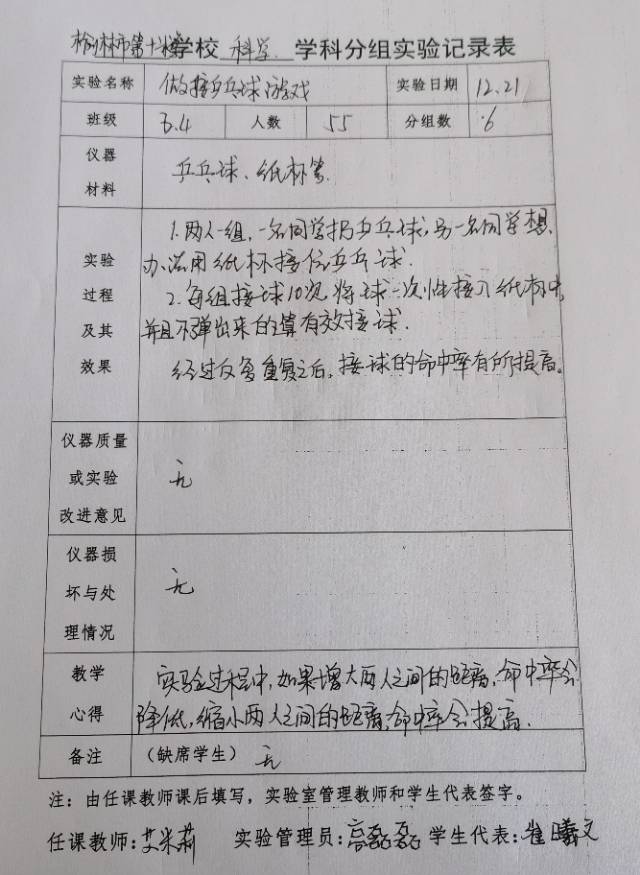 榆林市第十二学校 科学 学科分组实验记录表
实验名称 做接乒乓球游戏 实验日期 12.21
班级 3.4 人数 55 分组数 6
仪器材料 乒乓球、纸杯等.
实验过程及其效果
1.两人一组,一名同学抛乒乓球,另一名同学想
办法用纸杯接住乒乓球.
2.每组接球10次,将球一次性接入纸杯中,
并且不弹出来的算有效接球.
经过反复重复之后,接球的命中率有所提高。
仪器质量或实验改进意见 无
仪器损坏与处理情况 无
教学心得
实验过程中,如果增大两人之间的距离,命中率会
降低,缩小两人之间的距离,命中率会提高.
备注 (缺席学生) 无
注:由任课教师课后填写,实验室管理教师和学生代表签字。
任课教师:艾米莉 实验管理员:高磊磊 学生代表:崔曦文